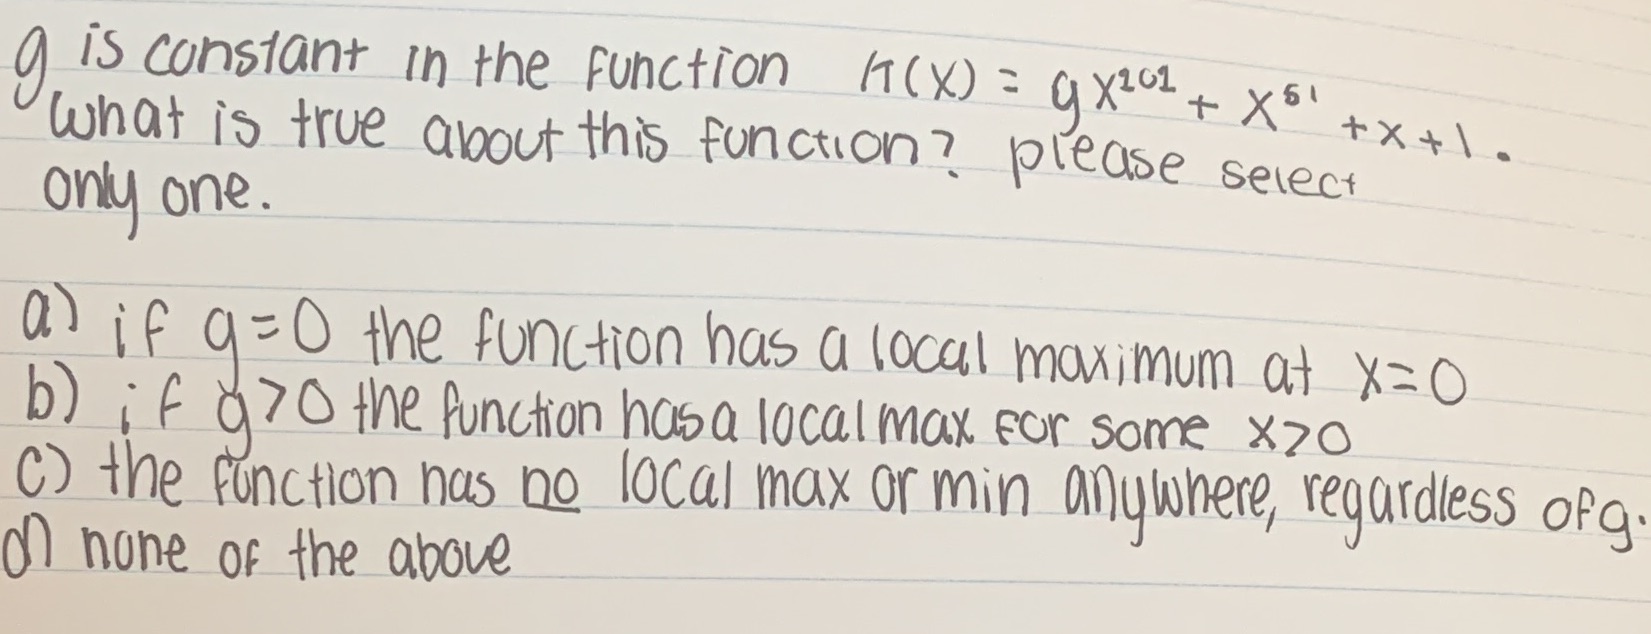 g is constant in the function H(x) = gx²⁰¹ + x⁵¹ + x + 1.
What is true about this function? please select
only one.
a) if g=0 the function has a local maximum at x=0
b) if g>0 the function has a local max for some x>0
c) the function has no local max or min anywhere, regardless of g.
d) none of the above